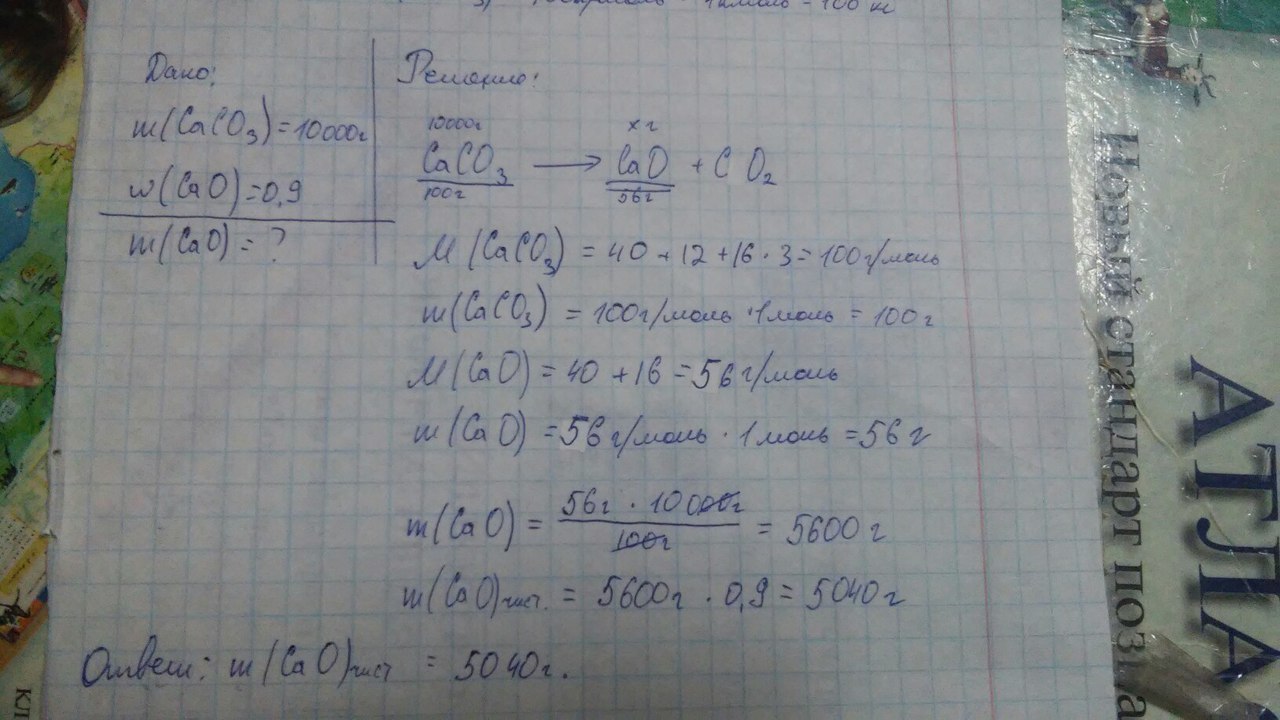 Дано:
m(CaCO3)=10000г
w(CaO)=0,9
m(CaO)=?
Решение:
10000г xг
CaCO3 ⟶ CaO + CO2
100г 56г
M(CaCO3) = 40 + 12 + 16 · 3 = 100г/моль
m(CaCO3) = 100г/моль · 1моль = 100г
M(CaO) = 40 + 16 = 56г/моль
m(CaO) = 56г/моль · 1моль = 56г
m(CaO) = 56г · 10000г / 100г = 5600г
m(CaO)чист. = 5600г · 0,9 = 5040г
Ответ: m(CaO)чист = 5040г.
Новый стандарт
АТЛА
КЛ